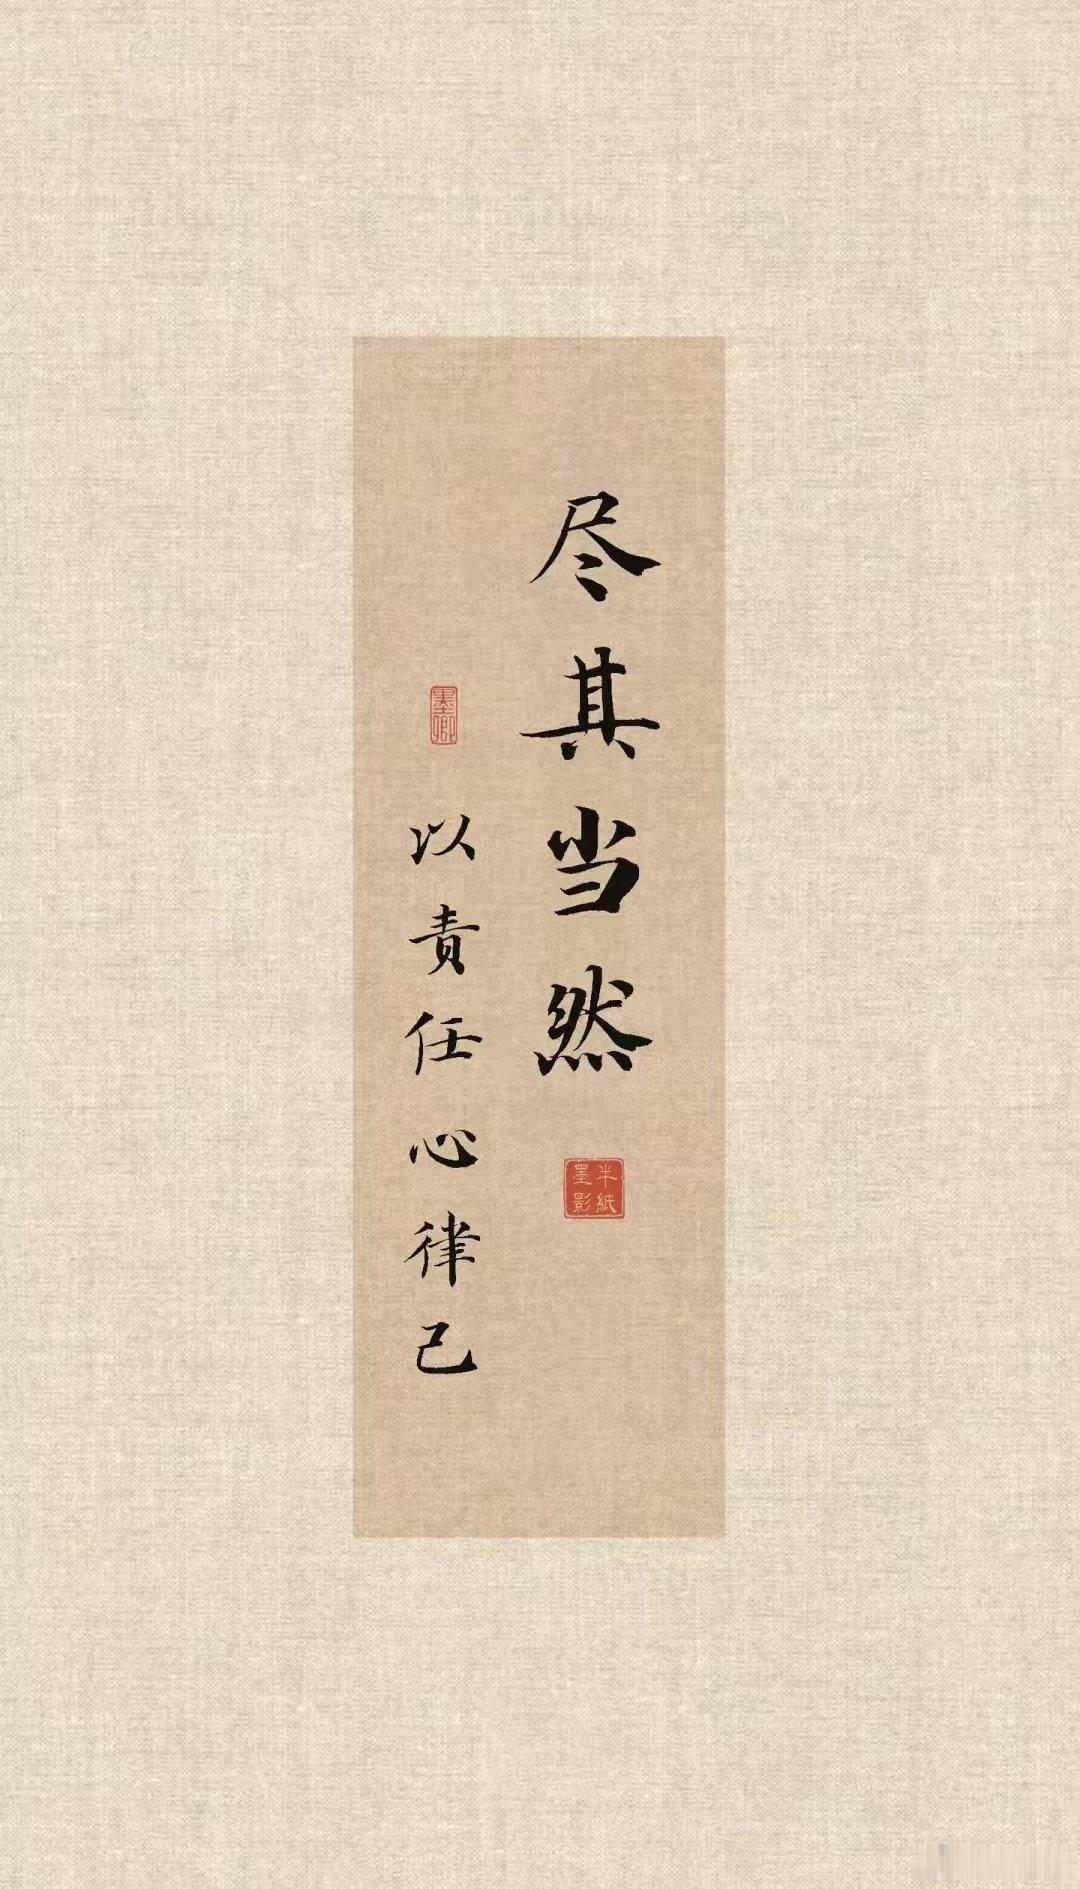 尽其当然
半纸
墨影
墨卿
以责任心律己